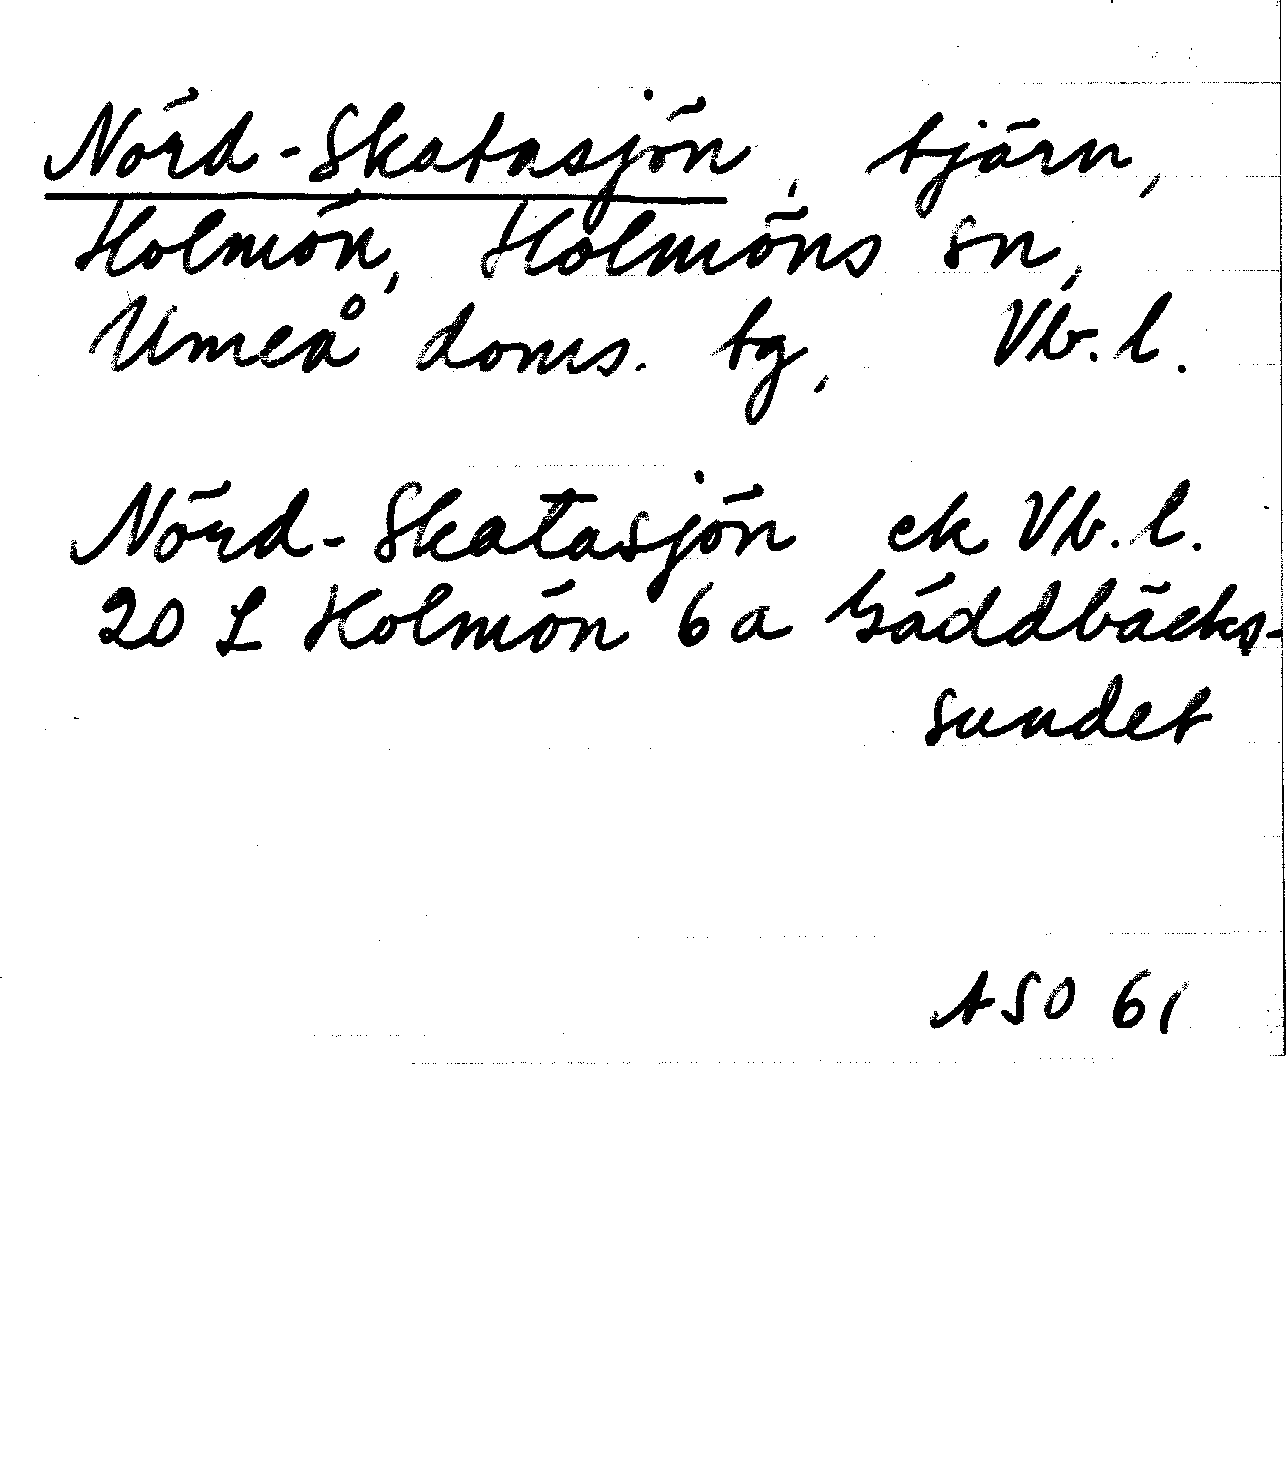 Nörd-Skatasjön, tjärn,
Holmön, Holmöns sn,
Umeå doms. tg, Vb. l.
Nörd-Skatasjön ek Vb. l.
20 L Holmön 6 a Gäddbäcks-
sundet
ASO 61